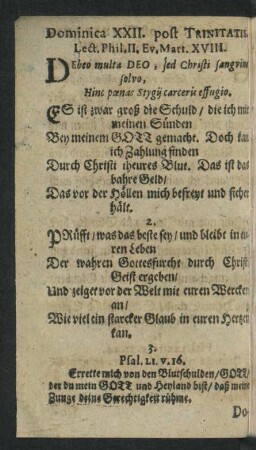 Dominica XXII. post TRINITATIS
Lect. Phil. II. Ev. Matt. XVIII.
DEbeo multa DEO, sed Christi sanguine
solvo,
Hinc pœnas Stygij carceris effugio.
ES ist zwar groß die Schuld / die ich mit
meinen Sünden
Bey meinem GOTT gemacht. Doch kan
ich Zahlung finden
Durch Christi theures Blut. Das ist das
bahre Geld /
Das vor der Höllen mich befreyt und sicher
hält.
2.
PRüfft / was das beste sey / und bleibt in eu-
ren Leben
Der wahren Gottesfurcht durch Christi
Geist ergeben /
Und zeiget vor der Welt mit euren Wercken
an /
Wie viel ein starcker Glaub in euren Hertzen
kan.
3.
Psal. LI. v. 16.
Errette mich von den Blutschulden / GOTT /
der du mein GOTT und Heyland bist / daß meine
Zunge deine Gerechtigkeit rühme.
Do-